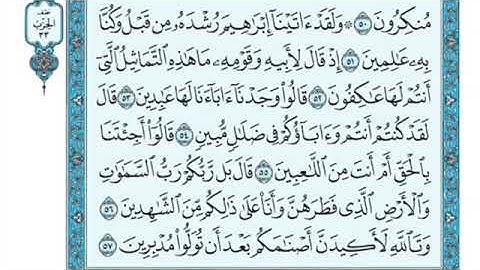 نصف
الحزب
٣٣
مُنكِرُونَ ٥٠ ۞ وَلَقَدْ ءَاتَيْنَآ إِبْرَٰهِيمَ رُشْدَهُۥ مِن قَبْلُ وَكُنَّا
بِهِۦ عَٰلِمِينَ ٥١ إِذْ قَالَ لِأَبِيهِ وَقَوْمِهِۦ مَا هَٰذِهِ ٱلتَّمَاثِيلُ ٱلَّتِىٓ
أَنتُمْ لَهَا عَٰكِفُونَ ٥٢ قَالُوا۟ وَجَدْنَآ ءَابَآءَنَا لَهَا عَٰبِدِينَ ٥٣ قَالَ
لَقَدْ كُنتُمْ أَنتُمْ وَءَابَآؤُكُمْ فِى ضَلَٰلٍ مُّبِينٍ ٥٤ قَالُوٓا۟ أَجِئْتَنَا
بِٱلْحَقِّ أَمْ أَنتَ مِنَ ٱللَّٰعِبِينَ ٥٥ قَالَ بَل رَّبُّكُمْ رَبُّ ٱلسَّمَٰوَٰتِ
وَٱلْأَرْضِ ٱلَّذِى فَطَرَهُنَّ وَأَنَا۠ عَلَىٰ ذَٰلِكُم مِّنَ ٱلشَّٰهِدِينَ ٥٦
وَتَٱللَّهِ لَأَكِيدَنَّ أَصْنَٰمَكُم بَعْدَ أَن تُوَلُّوا۟ مُدْبِرِينَ ٥٧